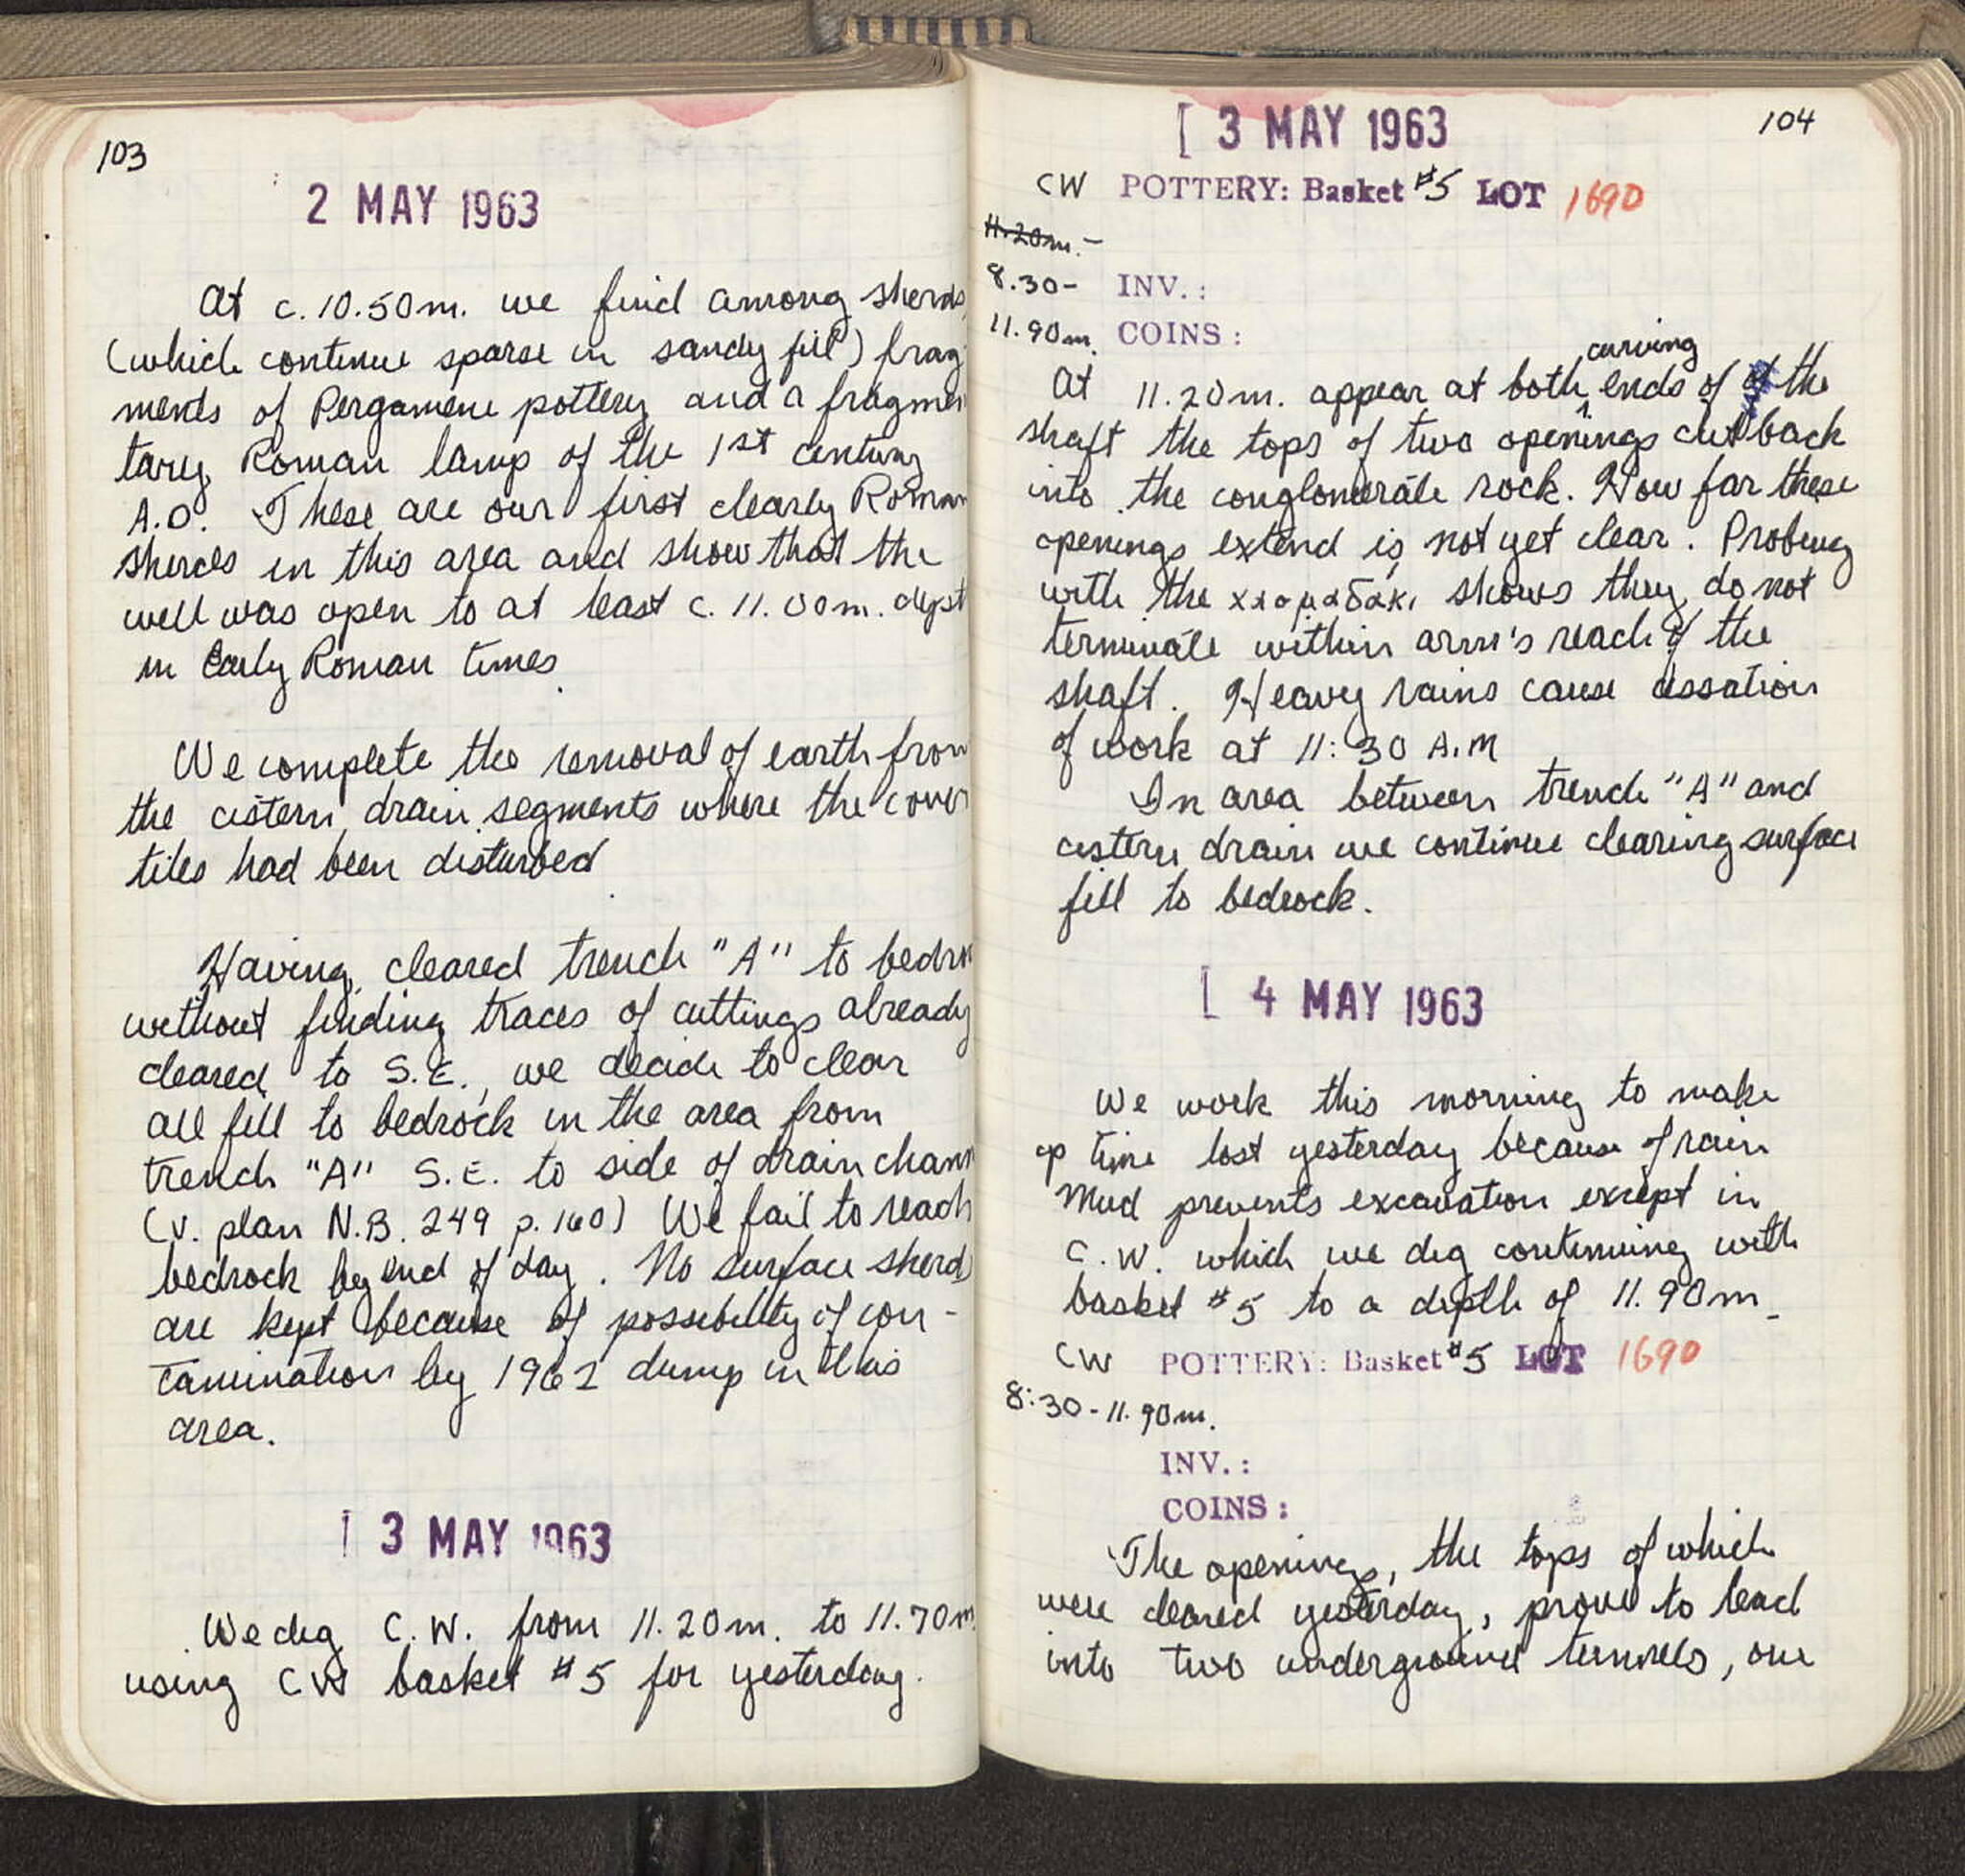 103
2 MAY 1963
At c. 10.50m. we find among sherds
(which continue sparse in sandy fill) frag-
ments of Pergamene pottery and a fragmen
tary Roman lamp of the 1st century
A.D. These are our first clearly Roman
sherds in this area and show that the
well was open to at least c. 11.00m. dept
in Early Roman times.
We complete the removal of earth from
the cistern drain segments where the cover
tiles had been disturbed
Having cleared trench "A" to bedro
without finding traces of cuttings already
cleared to S.E., we decide to clear
all fill to bedrock in the area from
trench "A" S.E. to side of drain chann
(v. plan N.B. 249 p. 160) We fail to reach
bedrock by end of day. No surface sherds
are kept because of possibility of con-
tamination by 1962 dump in this
area.
3 MAY 1963
We dig C.W. from 11.20m. to 11.70m
using CW basket #5 for yesterday.
104
[ 3 MAY 1963
CW POTTERY: Basket #5 LOT 1690
11.20m. -
8.30- INV.:
11.90m. COINS:
curving
At 11.20m. appear at both ends of the
shaft the tops of two openings cut back
into the conglomerate rock. How far these
openings extend is not yet clear. Probing
with the shows they do not
terminate within arm's reach of the
shaft. Heavy rains cause cessation
of work at 11:30 A.M
In area between trench "A" and
cistern drain we continue clearing surface
fill to bedrock.
[ 4 MAY 1963
We work this morning to make
up time lost yesterday because of rain
Mud prevents excavation except in
C.W. which we dig continuing with
basket #5 to a depth of 11.90m.
CW POTTERY: Basket #5 LOT 1690
8:30-11.90m.
INV.:
COINS:
The openings, the tops of which
were cleared yesterday, prove to lead
into two underground tunnels, one